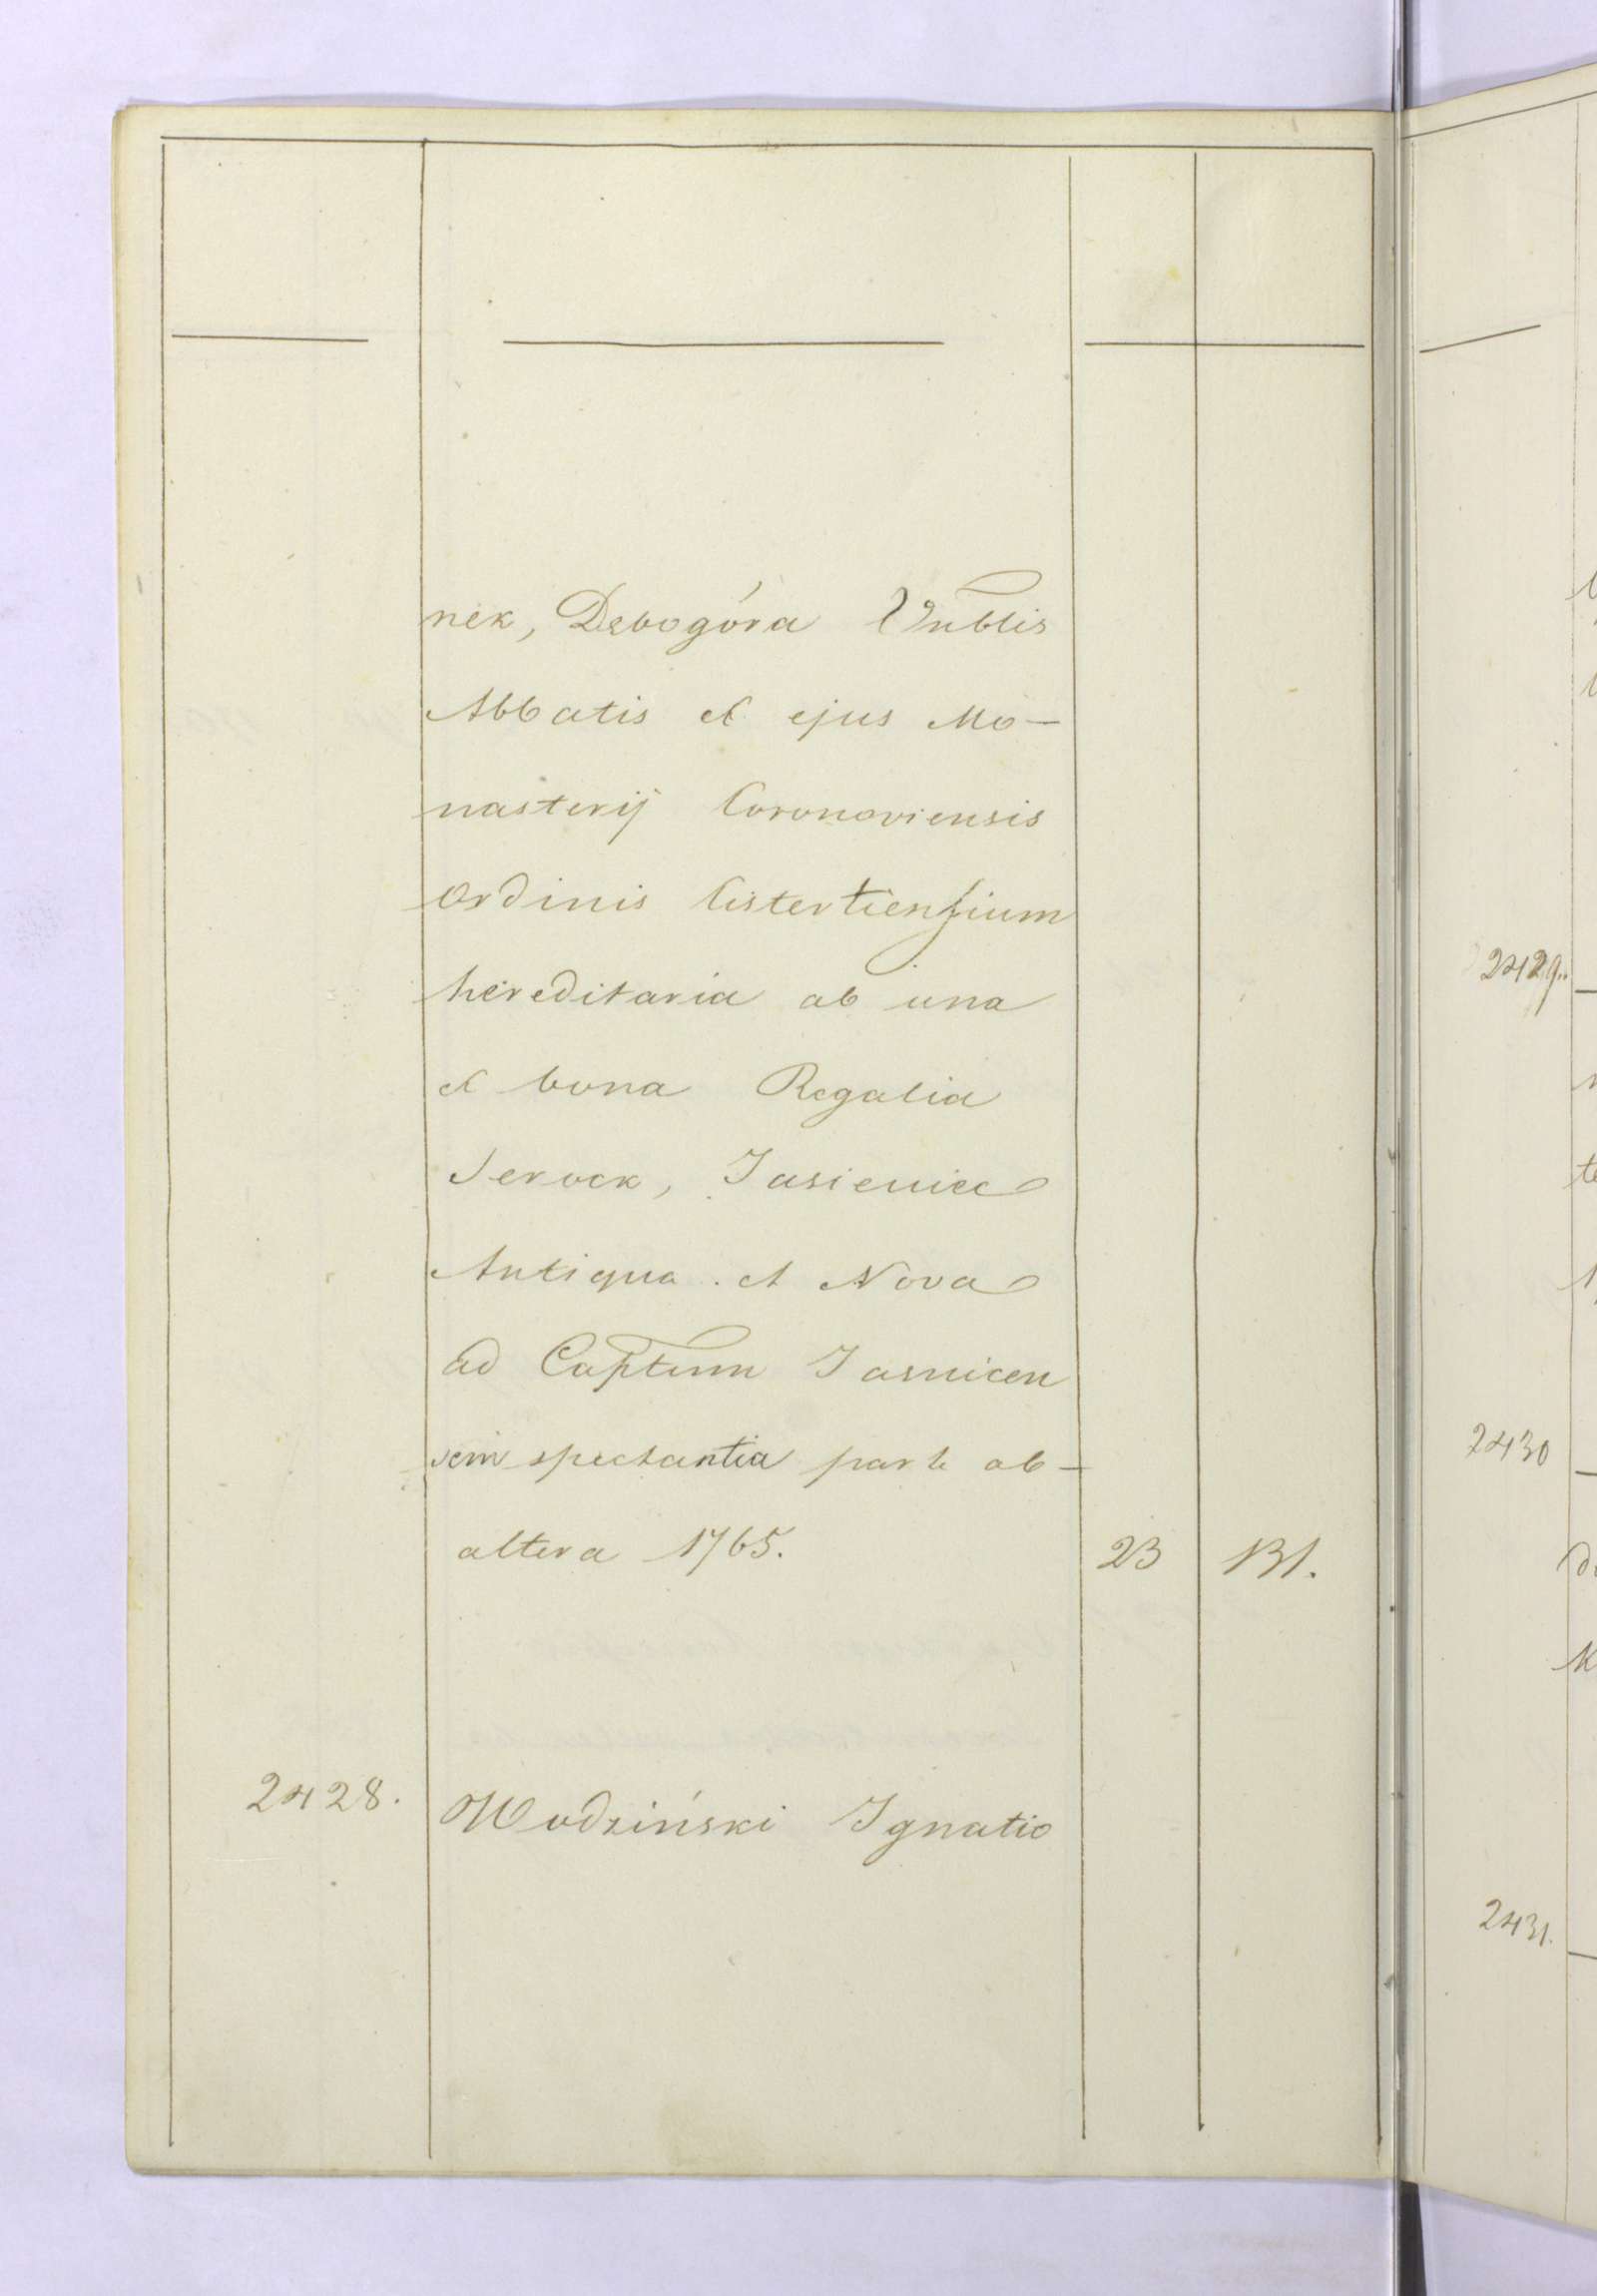 nek, Debogóra Vnblis
Abbatis et ejus Mo-
nasterij Coronoviensis
Ordinis Cistertiensium
hereditaria ab una
et bona Regalia
Serock, Jasieniec
Antiqua et Nova
ad Captum Jasnicen
sem spectantia parte ab-
altera 1765. 23 131.
2428. Wodziński Ignatio
2429.
2430
2431.